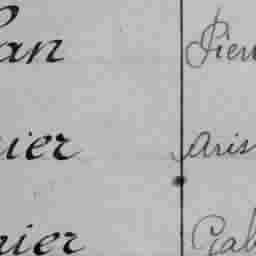 an Pier
ier aris
ier Gab